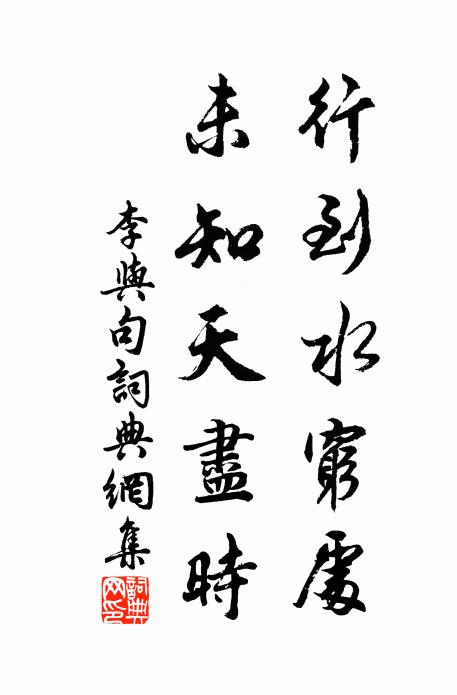 行到水窮處
未知天盡時
李㒜句詞典網集
詞典網印